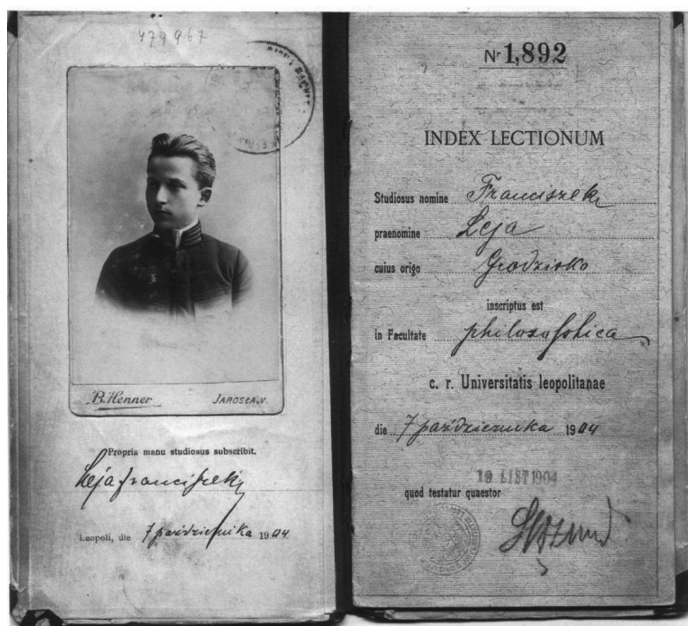 479967
B. Henner JAROSŁA.V.
Propria manu studiosus subscribit.
Leja Franciszek
Leopoli, die 7 października 1904
Nr 1,892
INDEX LECTIONUM
Studiosus nomine Franciszek
praenomine Leja
cuius origo Grodzisko
inscriptus est
in Facultate philozofohica
c. r. Universitatis leopolitanae
die 7 października 1904
19 LIST 1904
quod testatur quaestor